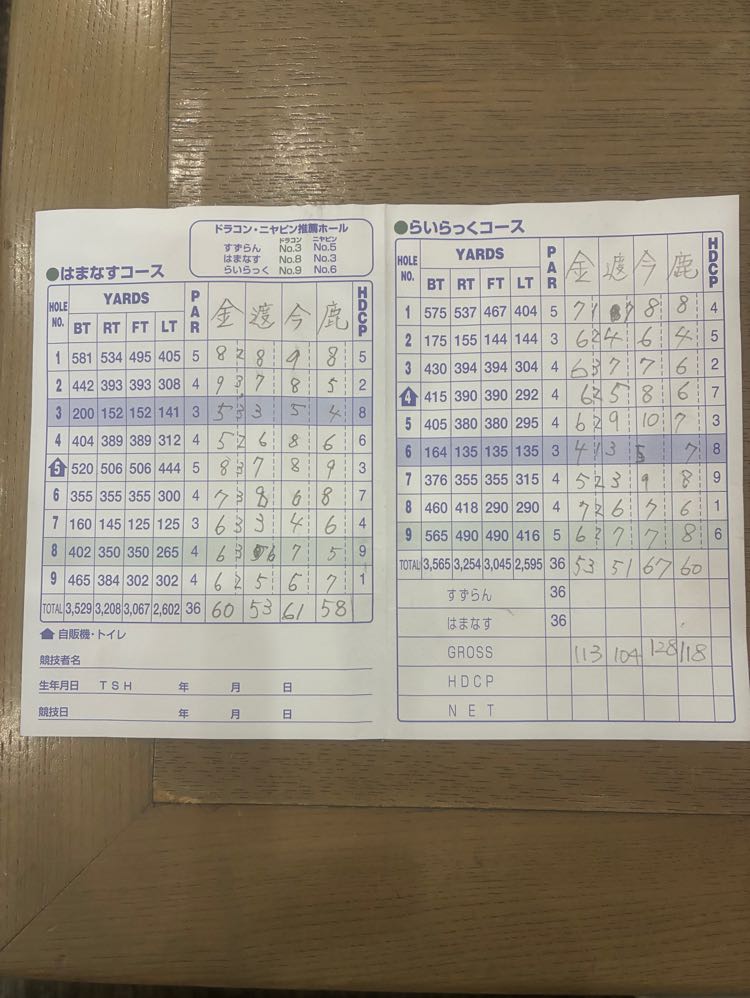 ドラコン・ニヤピン推薦ホール
ドラコン ニヤピン
すずらん No.3 No.5
はまなす No.8 No.3
らいらっく No.9 No.6
●はまなすコース
HOLE NO. YARDS PAR 金 渡 今 鹿 HDCP
BT RT FT LT
1 581 534 495 405 5 8 2 8 9 8 5
2 442 393 393 308 4 9 3 7 8 5 2
3 200 152 152 141 3 5 3 3 5 4 8
4 404 389 389 312 4 5 2 6 8 6 6
5 520 506 506 444 5 8 3 7 8 9 3
6 355 355 355 300 4 7 3 8 6 8 7
7 160 145 125 125 3 6 3 3 4 6 4
8 402 350 350 265 4 6 3 6 7 5 9
9 465 384 302 302 4 6 2 5 6 7 1
TOTAL 3,529 3,208 3,067 2,602 36 60 53 61 58
自販機・トイレ
競技者名
生年月日 T S H 年 月 日
競技日 年 月 日
●らいらっくコース
HOLE NO. YARDS PAR 金 渡 今 鹿 HDCP
BT RT FT LT
1 575 537 467 404 5 7 1 7 8 8 4
2 175 155 144 144 3 6 2 4 6 4 5
3 430 394 394 304 4 6 3 7 7 6 2
4 415 390 390 292 4 6 2 5 8 6 7
5 405 380 380 295 4 6 2 9 10 7 3
6 164 135 135 135 3 4 1 3 5 7 8
7 376 355 355 315 4 5 2 3 9 8 9
8 460 418 290 290 4 7 2 6 7 6 1
9 565 490 490 416 5 6 2 7 7 8 6
TOTAL 3,565 3,254 3,045 2,595 36 53 51 67 60
すずらん 36
はまなす 36
GROSS 113 104 128 118
HDCP
NET